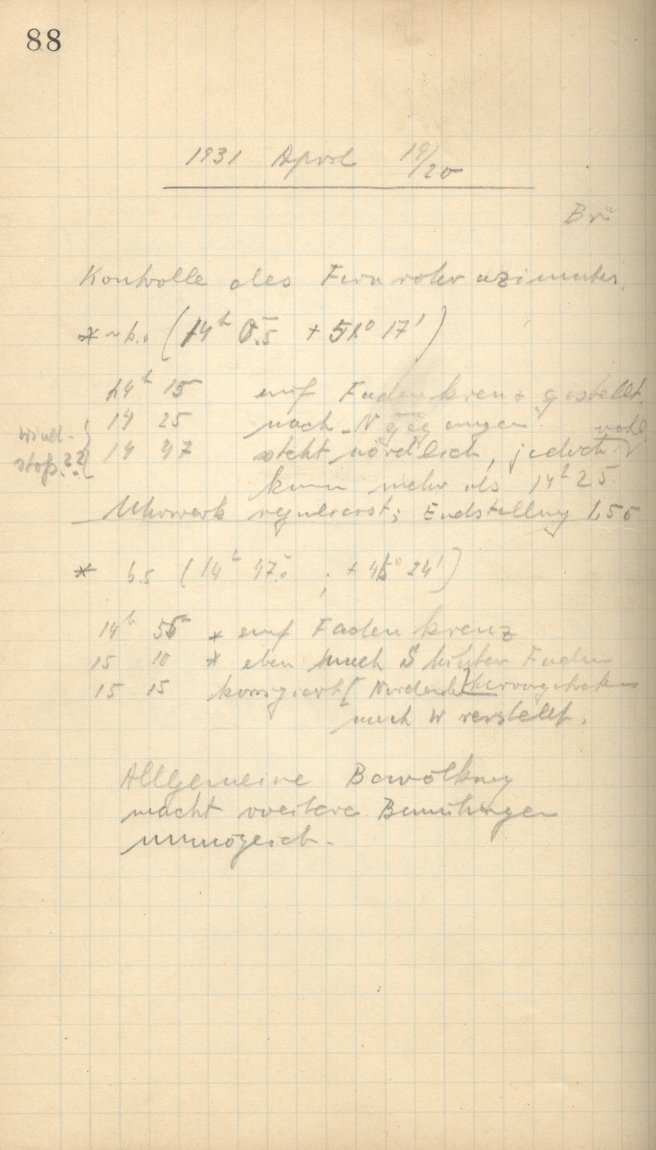 88
1931 April 19/20
Br
Kontrolle des Fernrohrazimutes.
* (14h 0.5 + 51° 17')
14h 15 auf Fadenkreuz gestellt.
14 25 nach N gegangen
Wind-
14 47 steht nördlich, jedoch
stoß??
kaum mehr als 14h 25
Uhrwerk reguliert; Endstellung 1.56
* 5.5 (14h 47.0 ; + 24')
14h 55 * auf Fadenkreuz
15 10 * eben nach S Faden
15 15 korrigiert [
nach W verstellt.
Allgemeine Bewölkung
macht weitere Bemühungen
unmöglich.